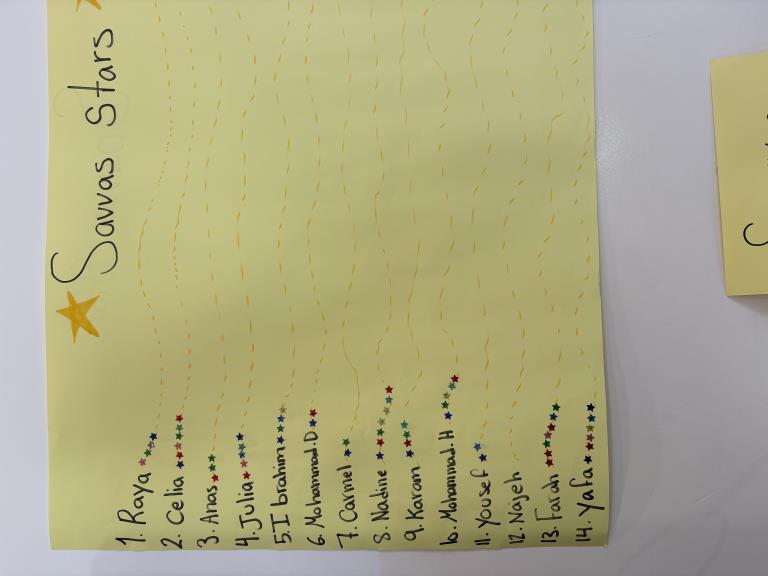 Savvas Stars
1. Raya
2. Celia
3. Anas
4. Julia
5. Ibrahim
6. Mohammad.D
7. Carmel
8. Nadine
9. Karam
10. Mohammad.H
11. Yousef
12. Najeh
13. Farah
14. Yafa